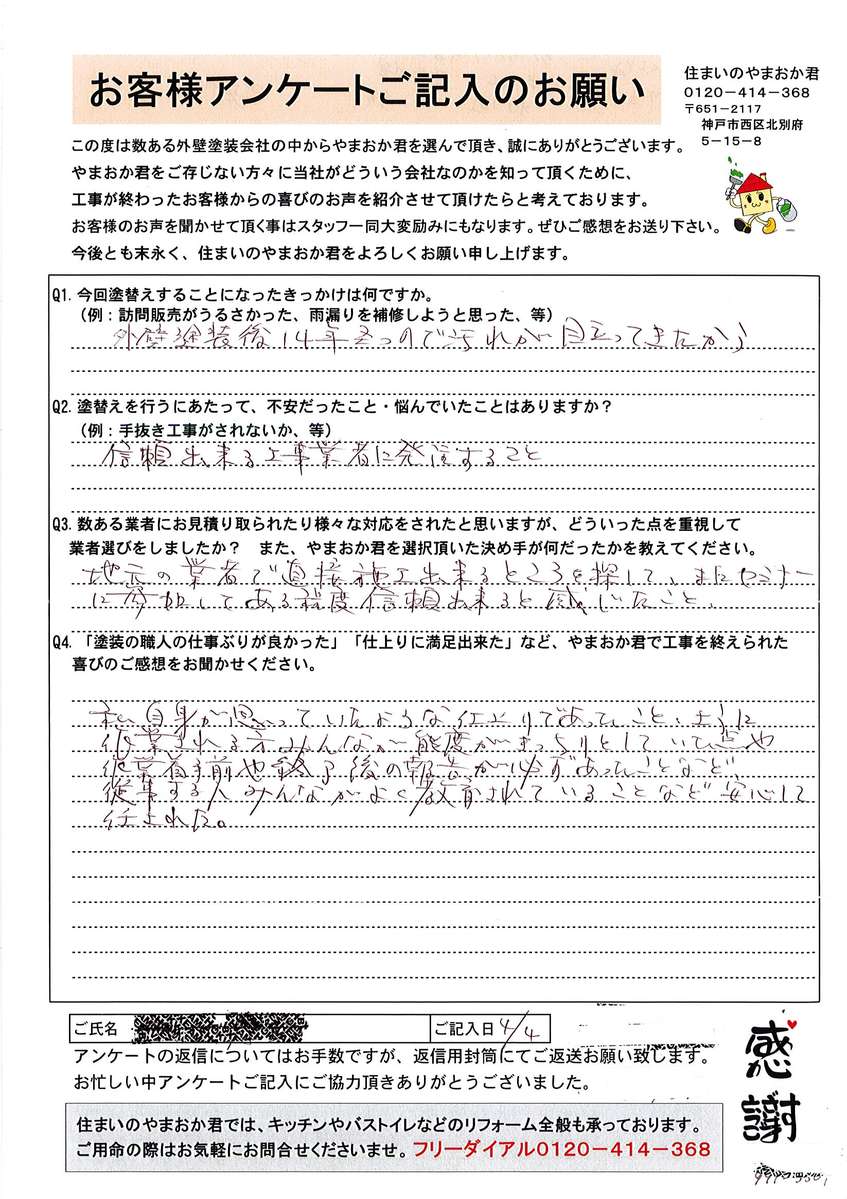 お客様アンケートご記入のお願い
住まいのやまおか君
0120-414-368
〒651-2117
神戸市西区北別府
5-15-8
この度は数ある外壁塗装会社の中からやまおか君を選んで頂き、誠にありがとうございます。
やまおか君をご存じない方々に当社がどういう会社なのかを知って頂くために、
工事が終わったお客様からの喜びのお声を紹介させて頂けたらと考えております。
お客様のお声を聞かせて頂く事はスタッフ一同大変励みにもなります。ぜひご感想をお送り下さい。
今後とも末永く、住まいのやまおか君をよろしくお願い申し上げます。
Q1. 今回塗替えすることになったきっかけは何ですか。
(例：訪問販売がうるさかった、雨漏りを補修しようと思った、等)
外壁塗装後14年たつので汚れが目立ってきたから
Q2. 塗替えを行うにあたって、不安だったこと・悩んでいたことはありますか？
(例：手抜き工事がされないか、等)
信頼出来る工事業者に発注すること
Q3. 数ある業者にお見積り取られたり様々な対応をされたと思いますが、どういった点を重視して
業者選びをしましたか？ また、やまおか君を選択頂いた決め手が何だったかを教えてください。
地元の業者で直接施工出来るところを探して、またセミナー
に参加してある程度信頼出来ると感じたこと、
Q4. 「塗装の職人の仕事ぶりが良かった」「仕上りに満足出来た」など、やまおか君で工事を終えられた
喜びのご感想をお聞かせください。
私自身が思っていたような仕上りであったこと、
作業される方みんなが態度がきっちりとしていて
作業着手前や終了後の報告が必ずあったことなど、
従事する人みんながよく教育されていることなど安心して
任された。
ご氏名
ご記入日 4/4
アンケートの返信についてはお手数ですが、返信用封筒にてご返送お願い致します。
お忙しい中アンケートご記入にご協力頂きありがとうございました。
感謝
住まいのやまおか君では、キッチンやバストイレなどのリフォーム全般も承っております。
ご用命の際はお気軽にお問合せくださいませ。フリーダイアル0120-414-368